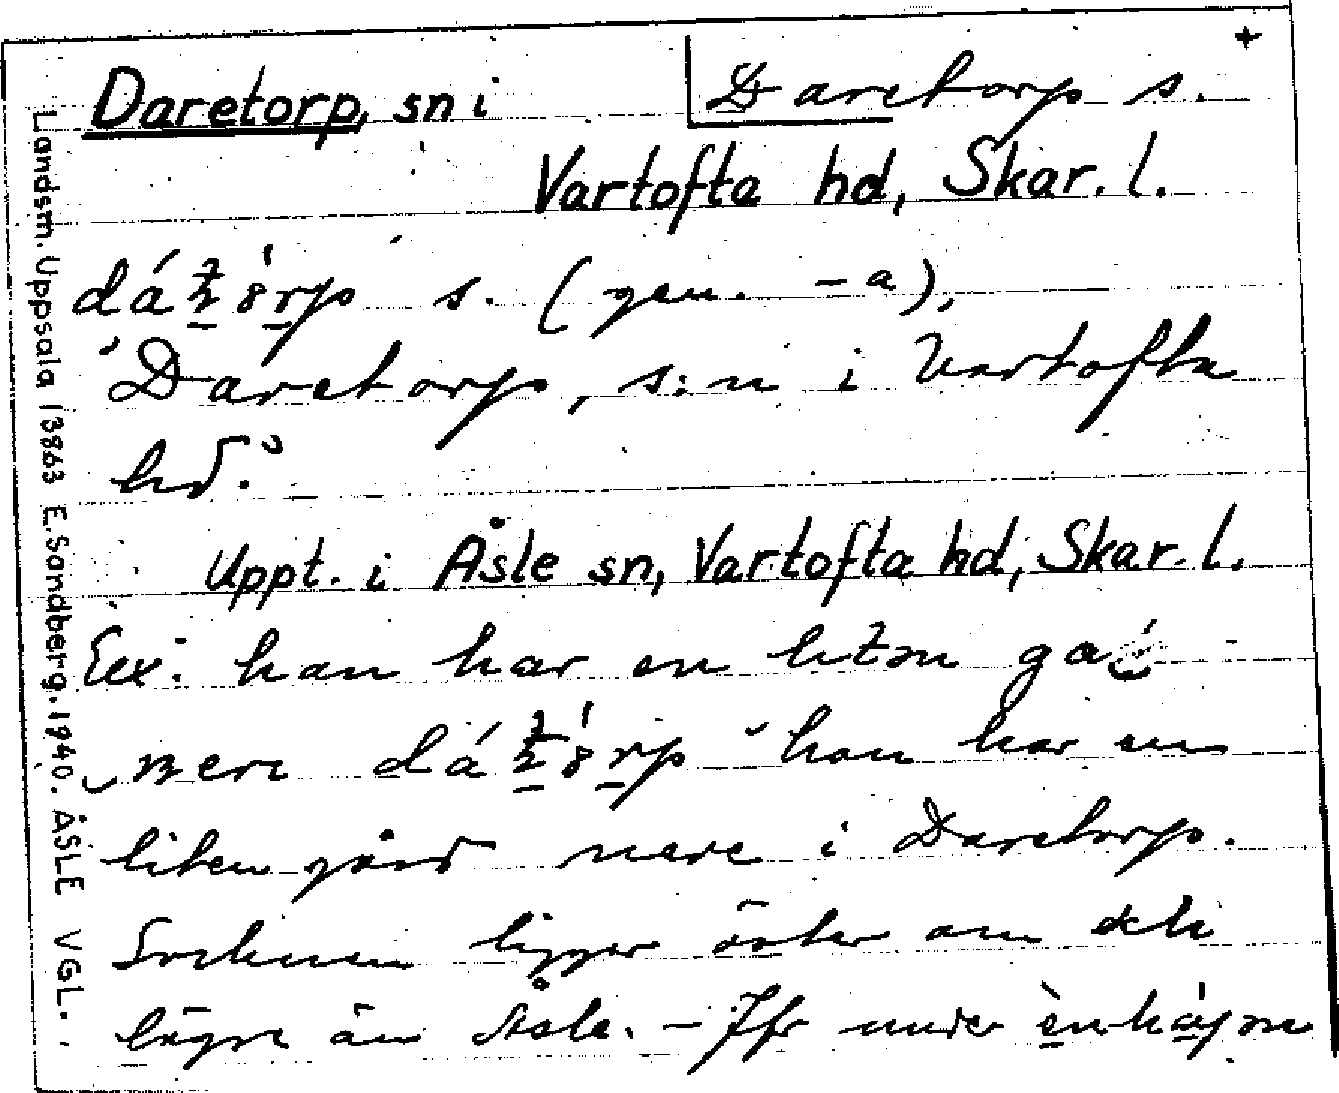 Daretorp, sn i
Daretorp s. +
Vartofta hd, Skar. l.
s. (gen. -a),
'Daretorp, s:n i Vartofta
hd.'
Uppt. i Åsle sn, Vartofta hd, Skar. l.
Ex. han har en
'han har en
liten gård nere i Daretorp.
Socknen ligger öster om och
lägre än Åsle. - Jfr under
Landsm. Uppsala 13863 E. Sandberg. 1940. ÅSLE VGL.